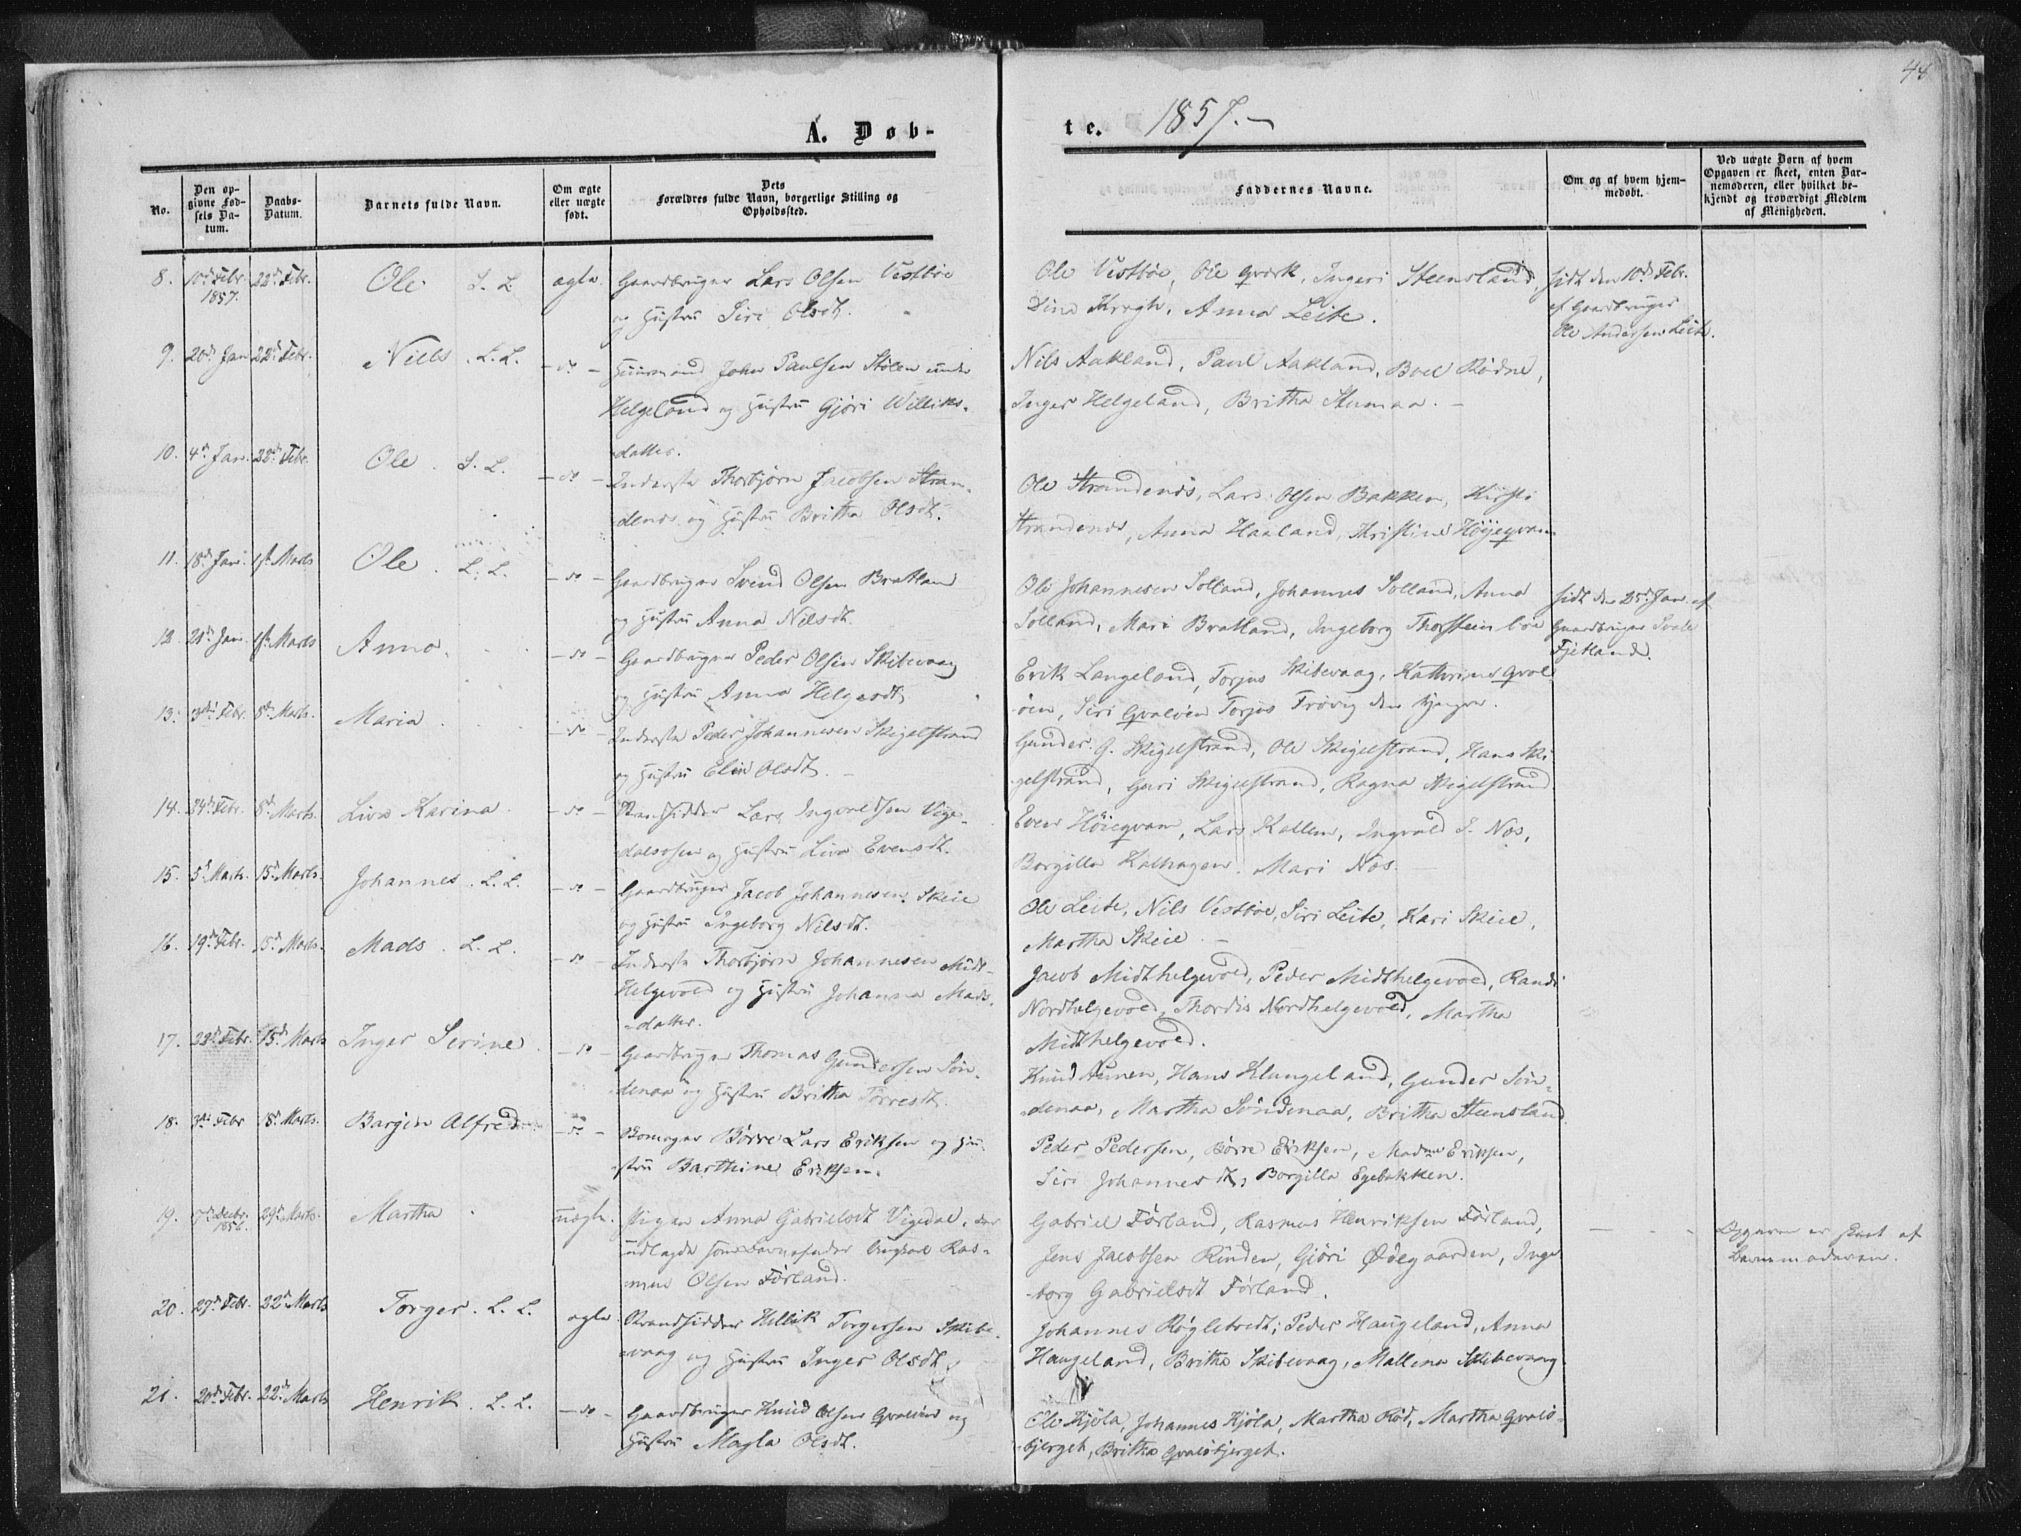 44
A. Døb-
te. 1857.-
No.
Den op-
givne Fød-
sels Da-
tum.
Daabs-
Datum.
Barnets fulde Navn.
Om ægte
eller uægte
født.
Dets
Forældres fulde Navn, borgerlige Stilling og
Opholdssted.
Faddernes Navne.
Om og af hvem hjem-
medøbt.
Ved uægte Børn af hvem
Opgaven er skeet, enten Bar-
nemoderen, eller hvilket be-
kjendt og troværdigt Medlem
af Menigheden.
8. 10de Febr. 1857. 22de Febr. Ole L. L. ægte. Gaardbruger Lars Olsen Vestbøe
og Hustru Siri Olsdt.
Ole Vestbøe, Ole Qværk, Ingeri Steensland,
Dina Kragh, Anna Leite.
hjdt den 10de Febr.
af Gaardbruger
Ole Andersen Leite.
9. 20de Jan 22de Febr. Niels. L. L. - do - Huusmand John Paulsen Stølen under
Helgeland og Hustru Gjøri Williks-
datter.
Nils Aakland, Paul Aakland, Boel Rødne,
Inger Helgeland, Britha Stumaa. -
10. 4de Jan. 22de Febr. Ole. L. L. - do - Inderste Thorbjørn Jacobsen Stran-
denæs og Hustru Britha Olsdt.
Ole Strandenæs, Lars Olsen Bakken, Kirsti
Strandenæs, Anna Haaland, Kristine Høijeqvam
11. 18de Jan. 1ste Marts Ole. L. L. - do - Gaardbruger Svend Olsen Bratland
og Hustru Anna Nilsdt.
Ole Johannesen Solland, Johannes Solland, Anna
Solland, Mari Bratland, Ingeborg Thorsteinbøe
hjdt den 25de Jan. af
Gaardbruger
Fjetland.
12. 21de Jan. 1ste Marts Anna. - do - Gaardbruger Peder Olsen Skibevaag
og Hustru Anna Helgesdt.
Erik Langeland, Torjus Skibevaag, Kathrine Qval-
øen, Siri Qvaløen Torjus Frøvig den yngre.
13. 3die Febr. 8de Marts. Maria. - do - Inderste Peder Johannesen Skigelstrand
og Hustru Elin Olsdt. -
Gunder G. Skigelstrand, Ole Skigelstrand, Hans Ski-
gelstrand, Guri Skigelstrand, Ragna Skigelstrand
14. 24de Febr. 8de Marts. Liva Karina. - do - Strandsidder Lars Ingvaldsen Vige-
dalsosen og Hustru Liva Evensdt.
Even Høieqvam, Lars Kallem, Ingvald I. Næs,
Borgilla Kalhagen. Mari Næs. -
15. 5te Marts. 15de Marts. Johannes. L. L. - do - Gaardbruger Jacob Johannesen Skeie
og Hustru Ingeborg Nilsdt.
Ole Leite, Nils Vestbøe, Siri Leite, Kari Skeie,
Martha Skeie. -
16. 19de Febr. 15de Marts. Mads. L. L. - do - Inderste Thorbjørn Johannesen Midt-
Helgevold og Hustru Johanna Mads-
datter.
Jacob Midthelgevold, Peder Midthelgevold, Randi
Nordhelgevold, Thordis Nordhelgevold, Martha
Midthelgevold.
17. 22de Febr. 15de Marts Inger Serine. - do - Gaardbruger Thomas Gundersen Søn-
denaa og Hustru Britha Torresdt.
Knud Aunen, Hans Klungeland, Gunder Søn-
denaa, Martha Søndenaa, Britha Steensland
18. 7de Febr 18de Marts. Børgin Alfred - do - Bomager Børre Lars Eriksen og Hu-
stru Barthine Eriksen.
Peder Pedersen, Børre Eriksen, Madme Eriksen,
Siri Johannesdt., Borgilla Egebakken.
19. 7de Decbr. 1856. 29de Marts. Martha. uægte. Pigen Anna Gabrielsdt Vigedal, der
udlagde som Barnefader Ungkarl Ras-
mus Olsen Førland.
Gabriel Førland, Rasmus Henriksen Førland,
Jens Jacobsen Rinden, Gjøri Ødegaarden, Inge-
borg Gabrielsdt Førland.
Opgaven er skeet af
Barnemoderen.
20. 27de Febr. 22de Marts Torger. L. L. ægte. Strandsidder Hellik Torgersen Skibe-
vaag og Hustru Inger Olsdt.
Johannes Røgletvedt, Peder Haugeland, Anna
Haugeland, Britha Skibevaag, Mallena Skibevaag
21. 20de Febr. 22de Marts Henrik. L. L. - do - Gaardbruger Knud Olsen Qvaløen og
Hustru Magla Olsdt.
Ole Kjøla, Johannes Kjøla, Martha Rød, Martha Qvalø-
bjerget, Britha Qvaløbjerget.